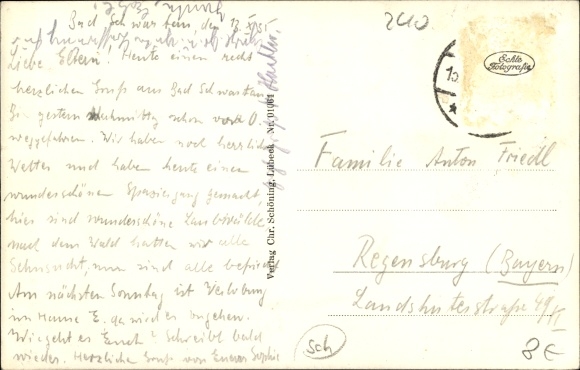 Bad Schwartau, den 13. XI. 35
Liebe Eltern! Heute einen recht
herzlichen Gruß aus Bad Schwartau.
gestern Nachmittag schon von O.
weggefahren. Wir haben noch herrliches
Wetter und haben heute einen
wunderschönen Spaziergang gemacht,
hier sind wunderschöne Laubwälder
nach dem Wald hatten wir alle
Sehnsucht, nun sind alle befriedigt
Am nächsten Sonntag ist Verlobung
im Hause E. da wird es hergehen.
Wie geht es Euch? Schreibt bald
wieder. Herzliche Grüße von Eurer Sophie
Verlag Chr. Schöning, Lübeck Nr. 01064
2410
Echte
Fotografie
Familie Anton Friedl
Regensburg (Bayern)
Landshuterstraße 49/II
Sch
8 €